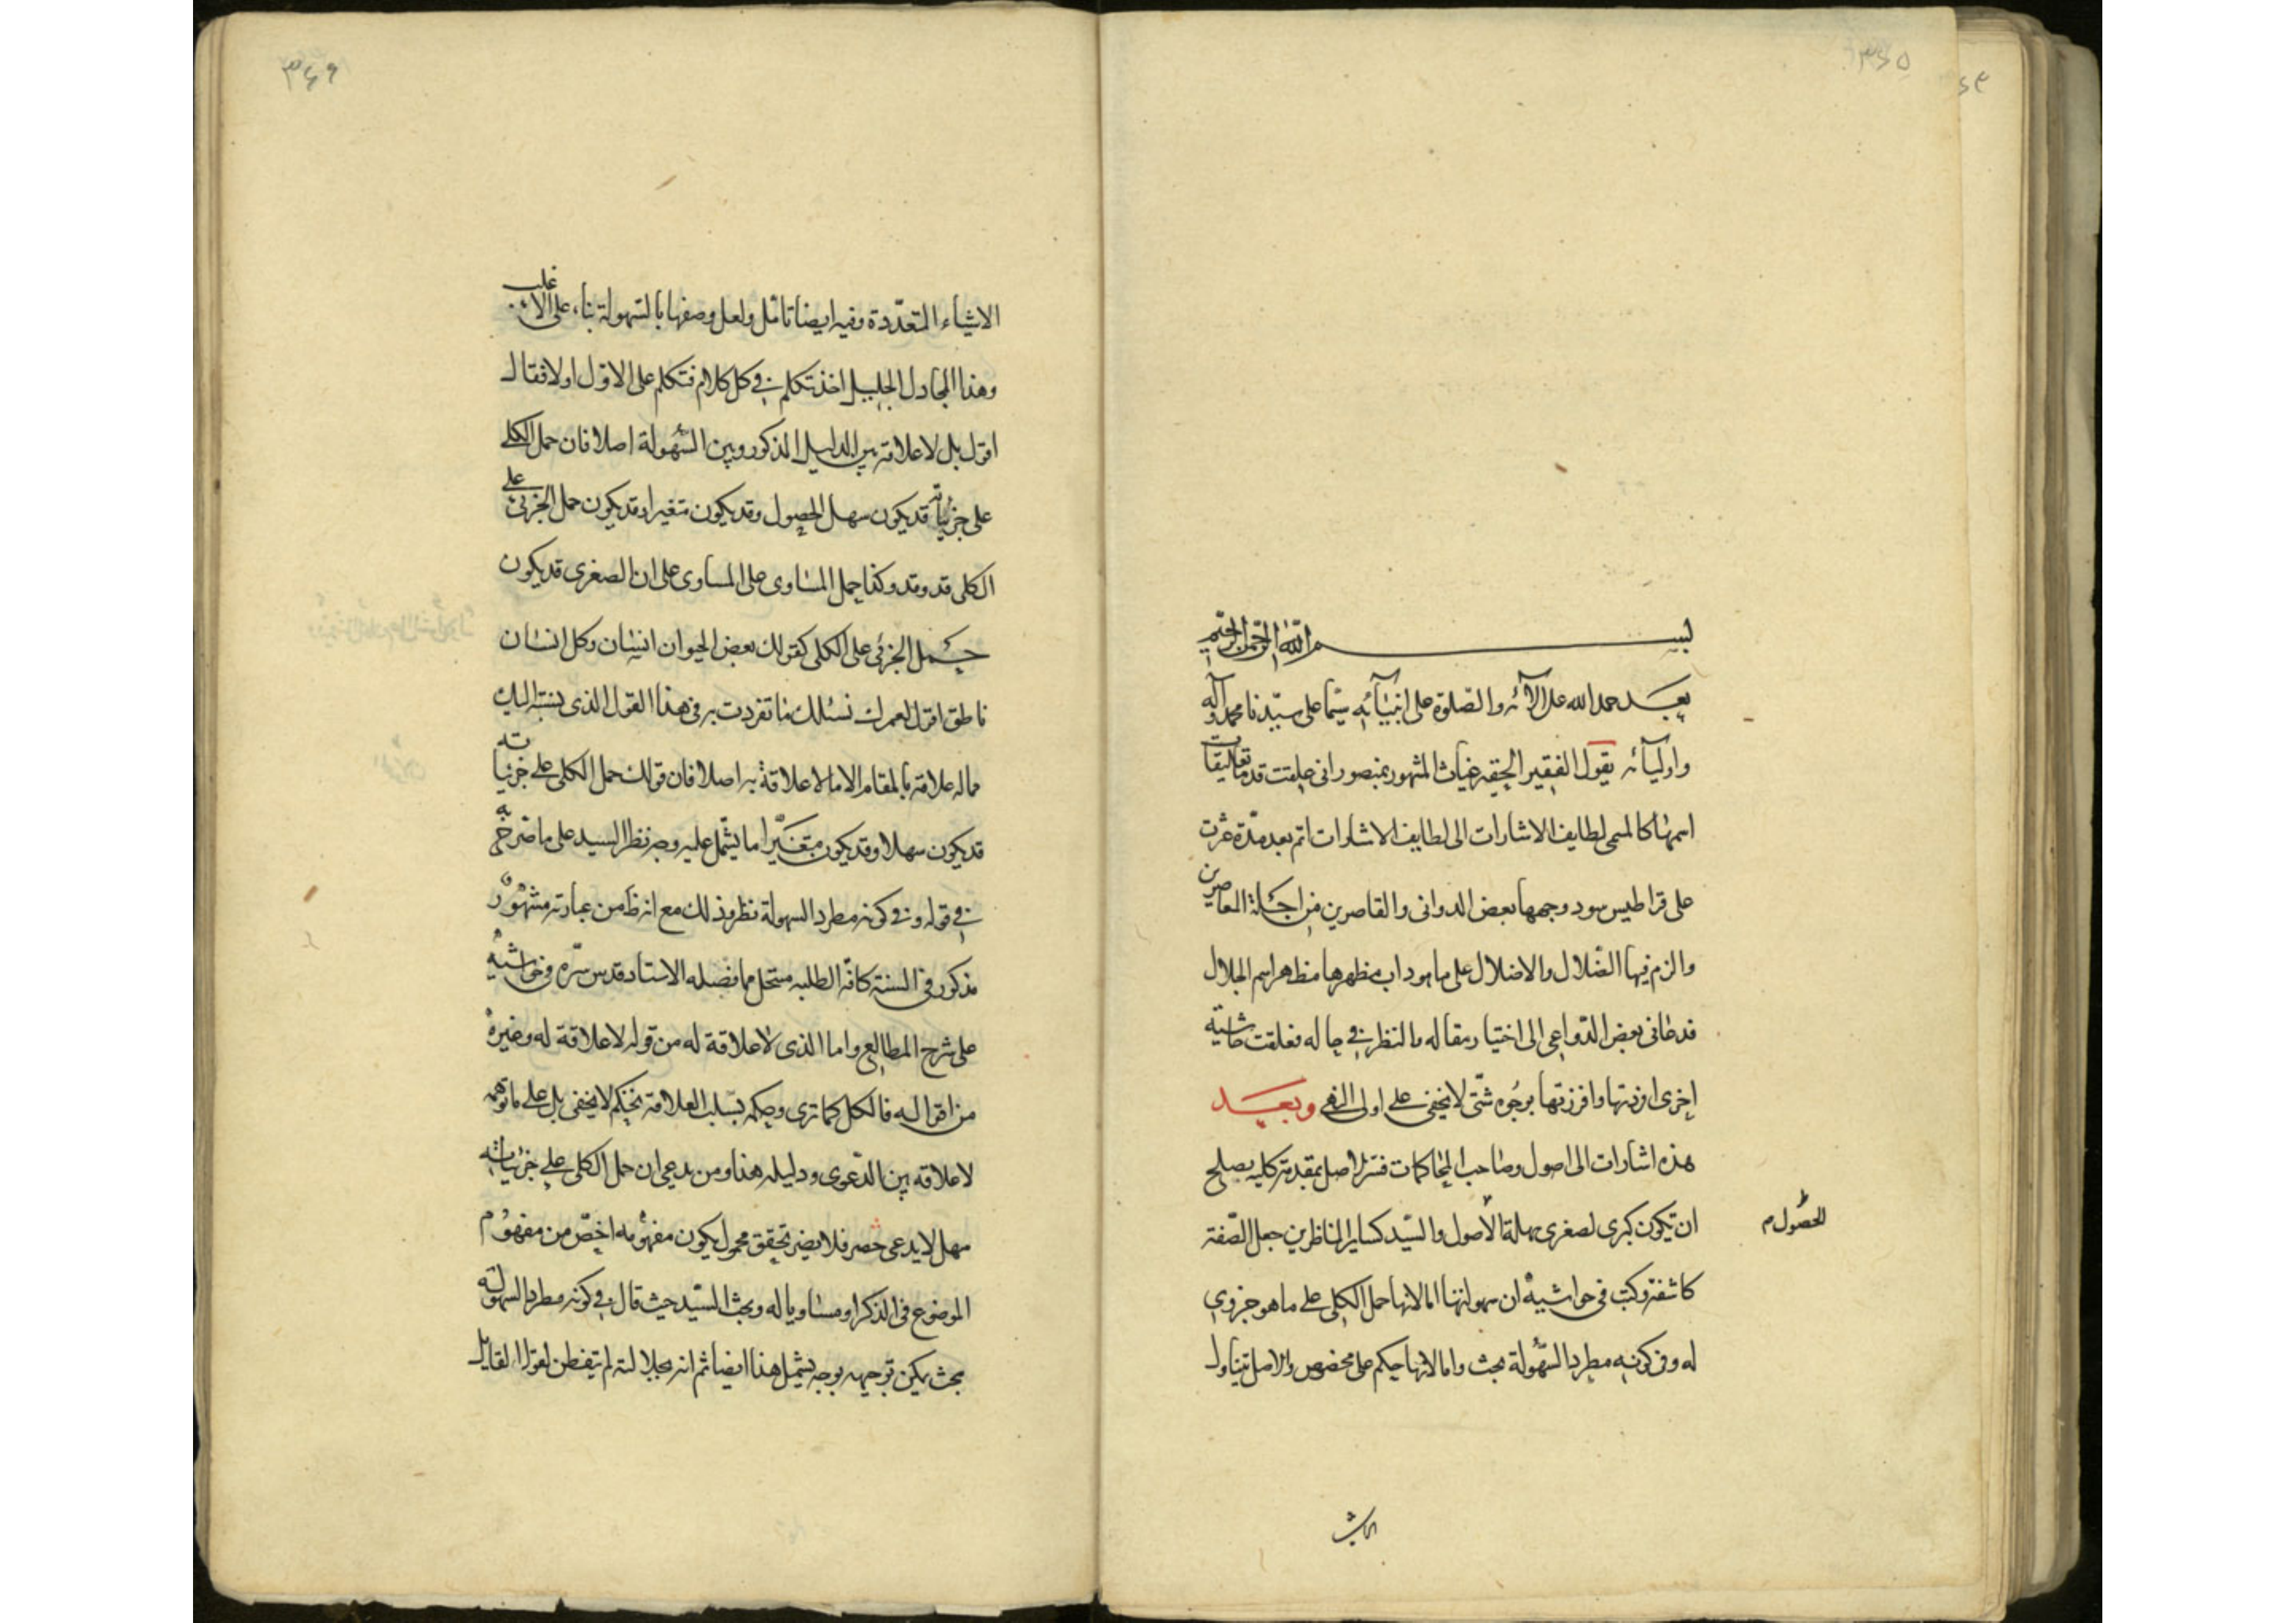 ٣٤٥
بسم الله الرحمن الرحيم
بعد حمد الله على آلائه والصلوة على انبيائه سيما على سيدنا محمد وآله
واوليائه يقول الفقير الحقير غياث المشهور بمنصور انى علقت قدما تعليقات
اسمها كالمسمى لطايف الاشارات الى لطايف الاشارات ثم بعد مدة عثرت
على قراطيس سود وجهها بعض الدوانى والقاصرين من اجلة المعاصرين
والزم فيها الضلال والاضلال على ما هو داب مظهرها مظاهر اسم الجلال
فدعانى بعض الدواعى الى اختيار مقاله بالنظر فى حاله فعلقت حاشية
اخرى اوردتها وافرزتها بوجوه شتى لا يخفى على اولى النهى وبعد
هذه اشارات الى اصول وصاحب المحاكمات فسر الاصل بمقدمة كلية يصلح
ان تكون كبرى لصغرى سهلة الأصول والسيد كساير الناظرين جعل الصفة
للحصول م
كاشفة وكتب فى حواشيه ان سهولتها اما لانها حمل الكلى على ما هو جزوى
له وفى كونه مطرد السهولة بحث واما لانها حكم على مخصوص والاصل تتناول
الاشياء
٣٤٦
الاشياء المتعددة وفيه ايضا تامل ولعل وصفها بالسهولة بناء على الاغلب
وهذا المجادل الجليل اخذ تكلم فى كل كلام فتكلم على الاول اولا فقال
اقول بل لا علاقة بين الدليل المذكور وبين السهولة اصلا فان حمل الكلى
على جزئياته قد يكون سهل الحصول وقد يكون متغيرا وقد يكون حمل الجزئى على
الكلى قد وقد وكذا حمل المساوى على المساوى على ان الصغرى قد يكون
بحمل الجزئى على الكلى كقولك بعض الحيوان انسان وكل انسان
ناطق اقول لعمرك نسئلك ما تفردت به فى هذا القول الذى ينسب اليك
ماله علاقة بالمقام الاما لا علاقة به اصلا فان قولك حمل الكلى على جزئياته
قد يكون سهلا وقد يكون متغيرا ما يشتمل عليه وجه نظر السيد على ما صرح به
فى قوله وفى كونه مطرد السهولة نظر وذلك مع انه ظ من عبارته مشهور
مذكور فى السنة كافة الطلبه منتحل مما فصله الاستاد قدس سره فى حواشيه
على شرح المطالع واما الذى لا علاقة له من قوله لا علاقة له وغيره
من اقواله فالكل كما ترى وحكمه بسلب العلاقة تحكم لا يخفى بل على ما توهمه
لا علاقه بين الدعوى ودليله هذا ومن يدعى ان حمل الكلى على جزئياته
سهل لا يدعى حصر فلا يضر تحقق محمول يكون مفهومه اخص من مفهوم
الموضوع فى الذكر او مساويا له وبحث السيد حيث قال فى كونه مطرد السهولة
بحث يمكن توجيهه بوجه يشمل هذا ايضا ثم انه بجلالته لم يتفطن لقول القايل